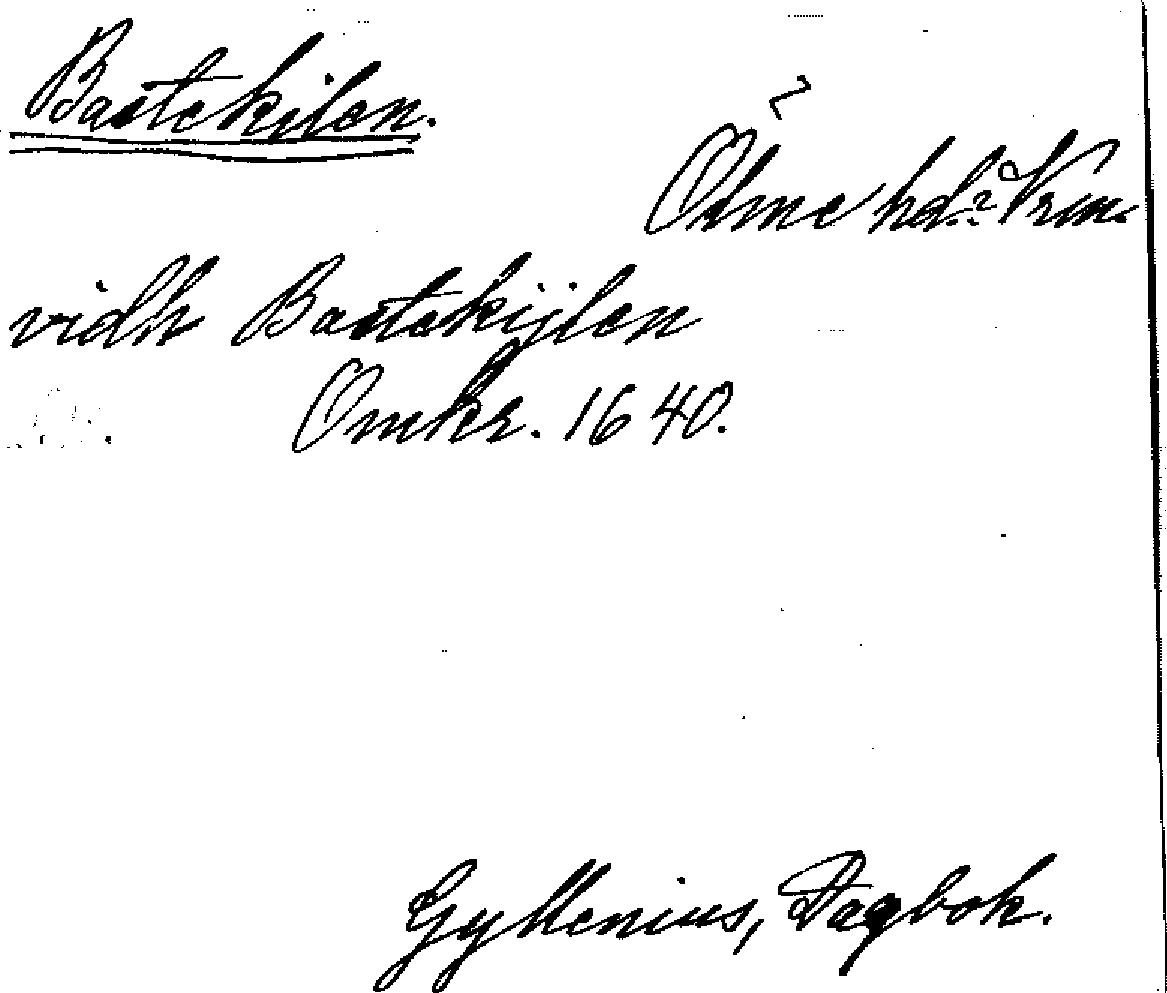 Bastekilen.
Ölme hd? Vrm.
vidh Bastekijlen
Omkr. 1640.
Gyllenius, Dagbok.